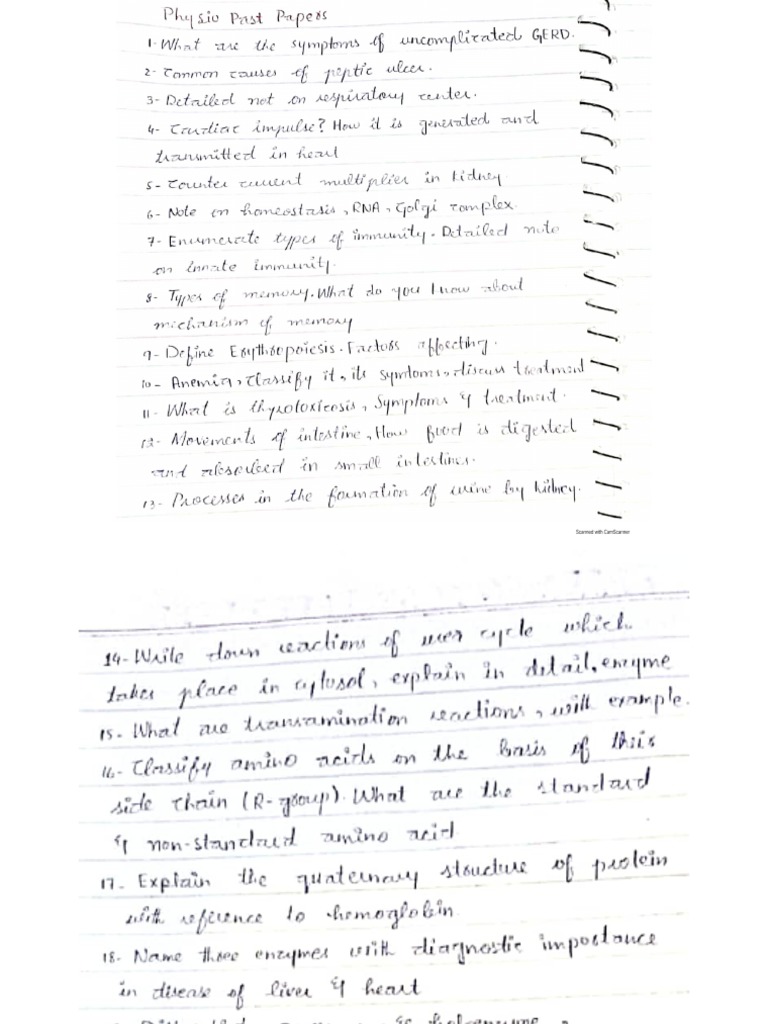 Physio Past Papers
1- What are the symptoms of uncomplicated GERD.
2- Common causes of peptic ulcer.
3- Detailed not on respiratory center.
4- Cardiac impulse? How it is generated and
transmitted in heart
5- Counter current multiplier in kidney.
6- Note on homeostasis, RNA, Golgi complex.
7- Enumerate types of immunity. Detailed note
on innate immunity.
8- Types of memory. What do you know about
mechanism of memory
9- Define Erythropoiesis. Factors affecting.
10- Anemia, Classify it, its symtoms, discuss treatment
11- What is thyrotoxicosis, Symptoms & treatment.
12- Movements of intestine, How food is digested
and absorbed in small intestines.
13- Processes in the formation of urine by kidney.
Scanned with CamScanner
14- Write down reactions of urea cycle which
takes place in cytosol, explain in detail, enzyme
15- What are transamination reactions, with example.
16- Classify amino acids on the basis of their
side chain (R-group). What are the standard
& non-standard amino acid
17- Explain the quaternary structure of protein
with refrence to hemoglobin
18- Name three enzymes with diagnostic importance
in disease of liver & heart